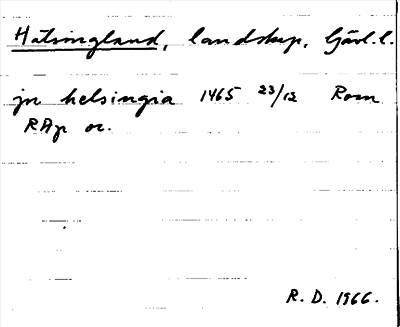 Hälsingland, landskap, Gävl. l.
jn helsingia 1465 23/12 Rom
RAp or.
R. D. 1966.